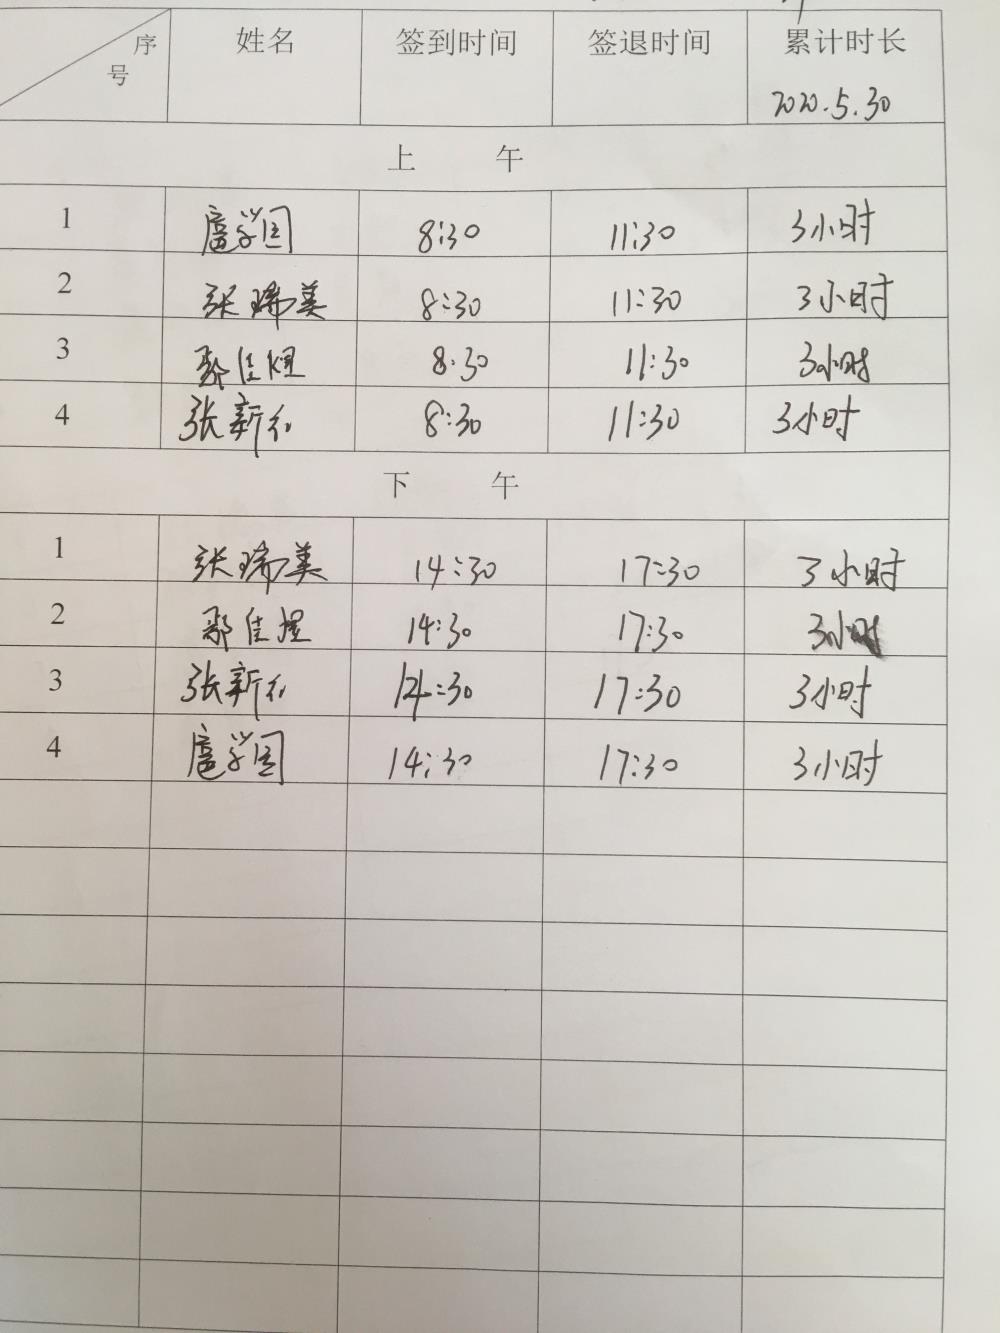 序号 姓名 签到时间 签退时间 累计时长
2020.5.30
上 午
1 扈学国 8:30 11:30 3小时
2 张瑞美 8:30 11:30 3小时
3 8:30 11:30 3小时
4 张新红 8:30 11:30 3小时
下 午
1 张瑞美 14:30 17:30 3小时
2 14:30 17:30 3小时
3 张新红 14:30 17:30 3小时
4 扈学国 14:30 17:30 3小时